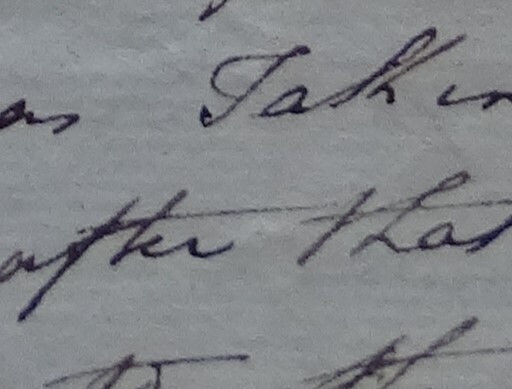 as Takin
after that